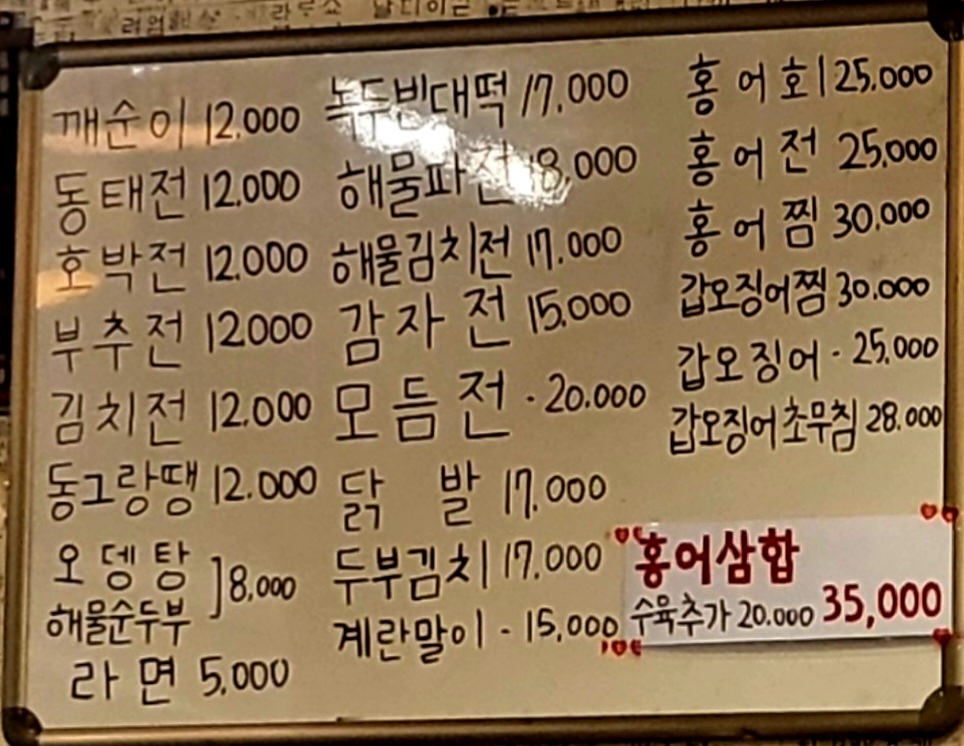 깨순이 12.000
동태전 12.000
호박전 12.000
부추전 12000
김치전 12.000
동그랑땡 12.000
오뎅탕
해물순두부 ] 8,000
라면 5.000
녹두빈대떡 17,000
해물파전 18,000
해물김치전 17.000
감자전 15.000
모듬전 · 20.000
닭발 17.000
두부김치 17.000
계란말이 - 15,000
홍어회 25.000
홍어전 25.000
홍어찜 30.000
갑오징어찜 30.000
갑오징어 · 25.000
갑오징어초무침 28.000
홍어삼합
수육추가 20.000 35,000